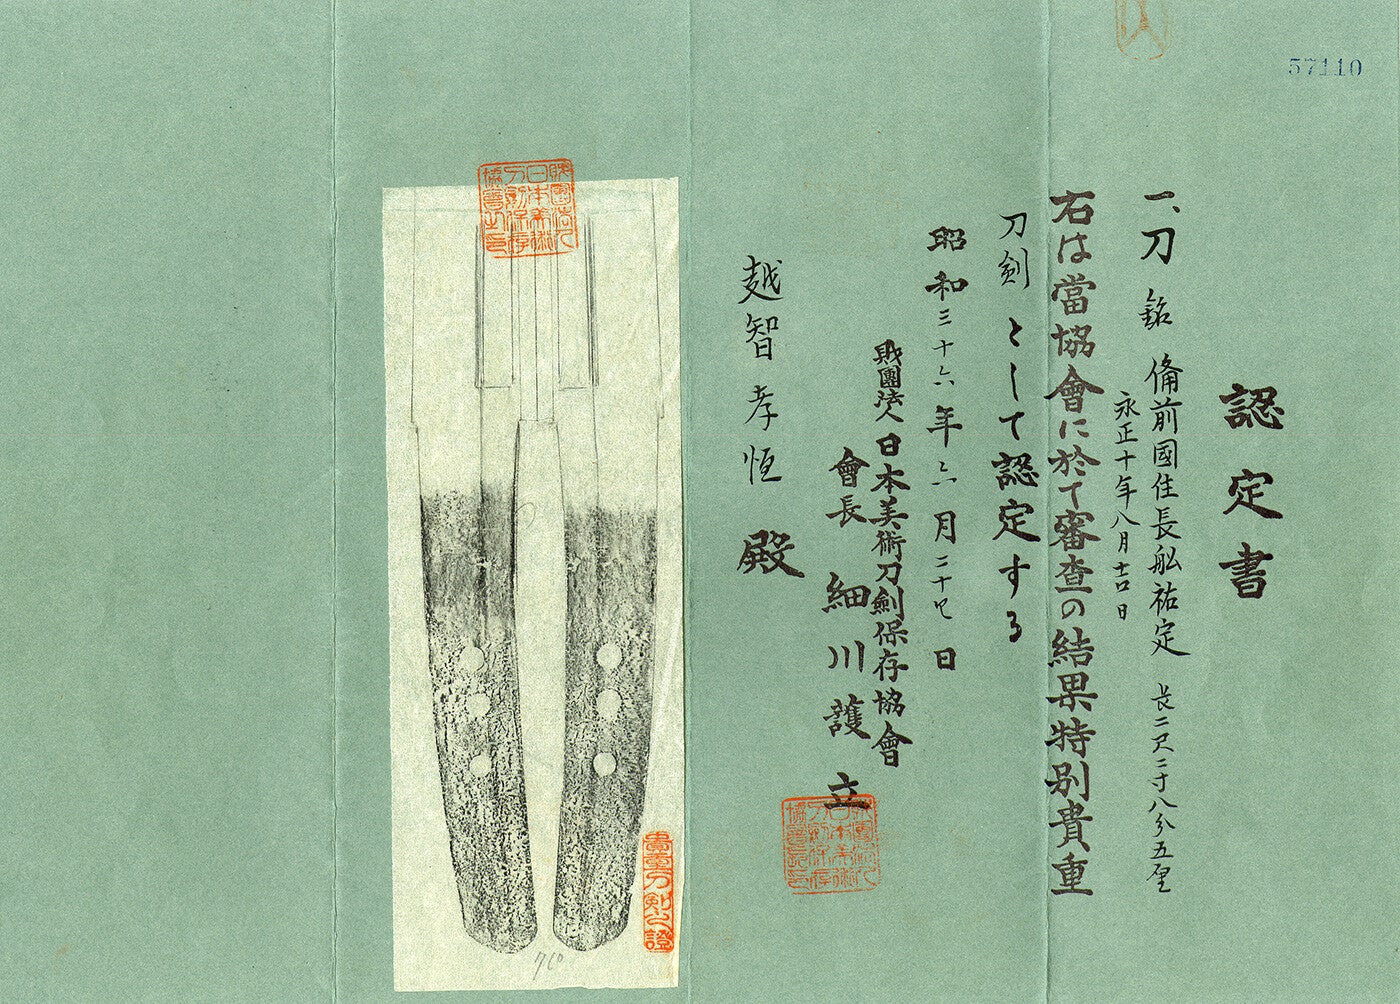 57110
認定書
一、刀 銘 備前國住長舩祐定 長二尺二寸八分五厘
永正十年八月十六日
右は當協會に於て審査の結果特別貴重
刀剣として認定する
昭和三十六年六月二十七日
財團法人日本美術刀劍保存協會
會長 細川護立
越智孝恒 殿
財團法人日本美術刀剣保存協會之印
貴重刀剣之證
760